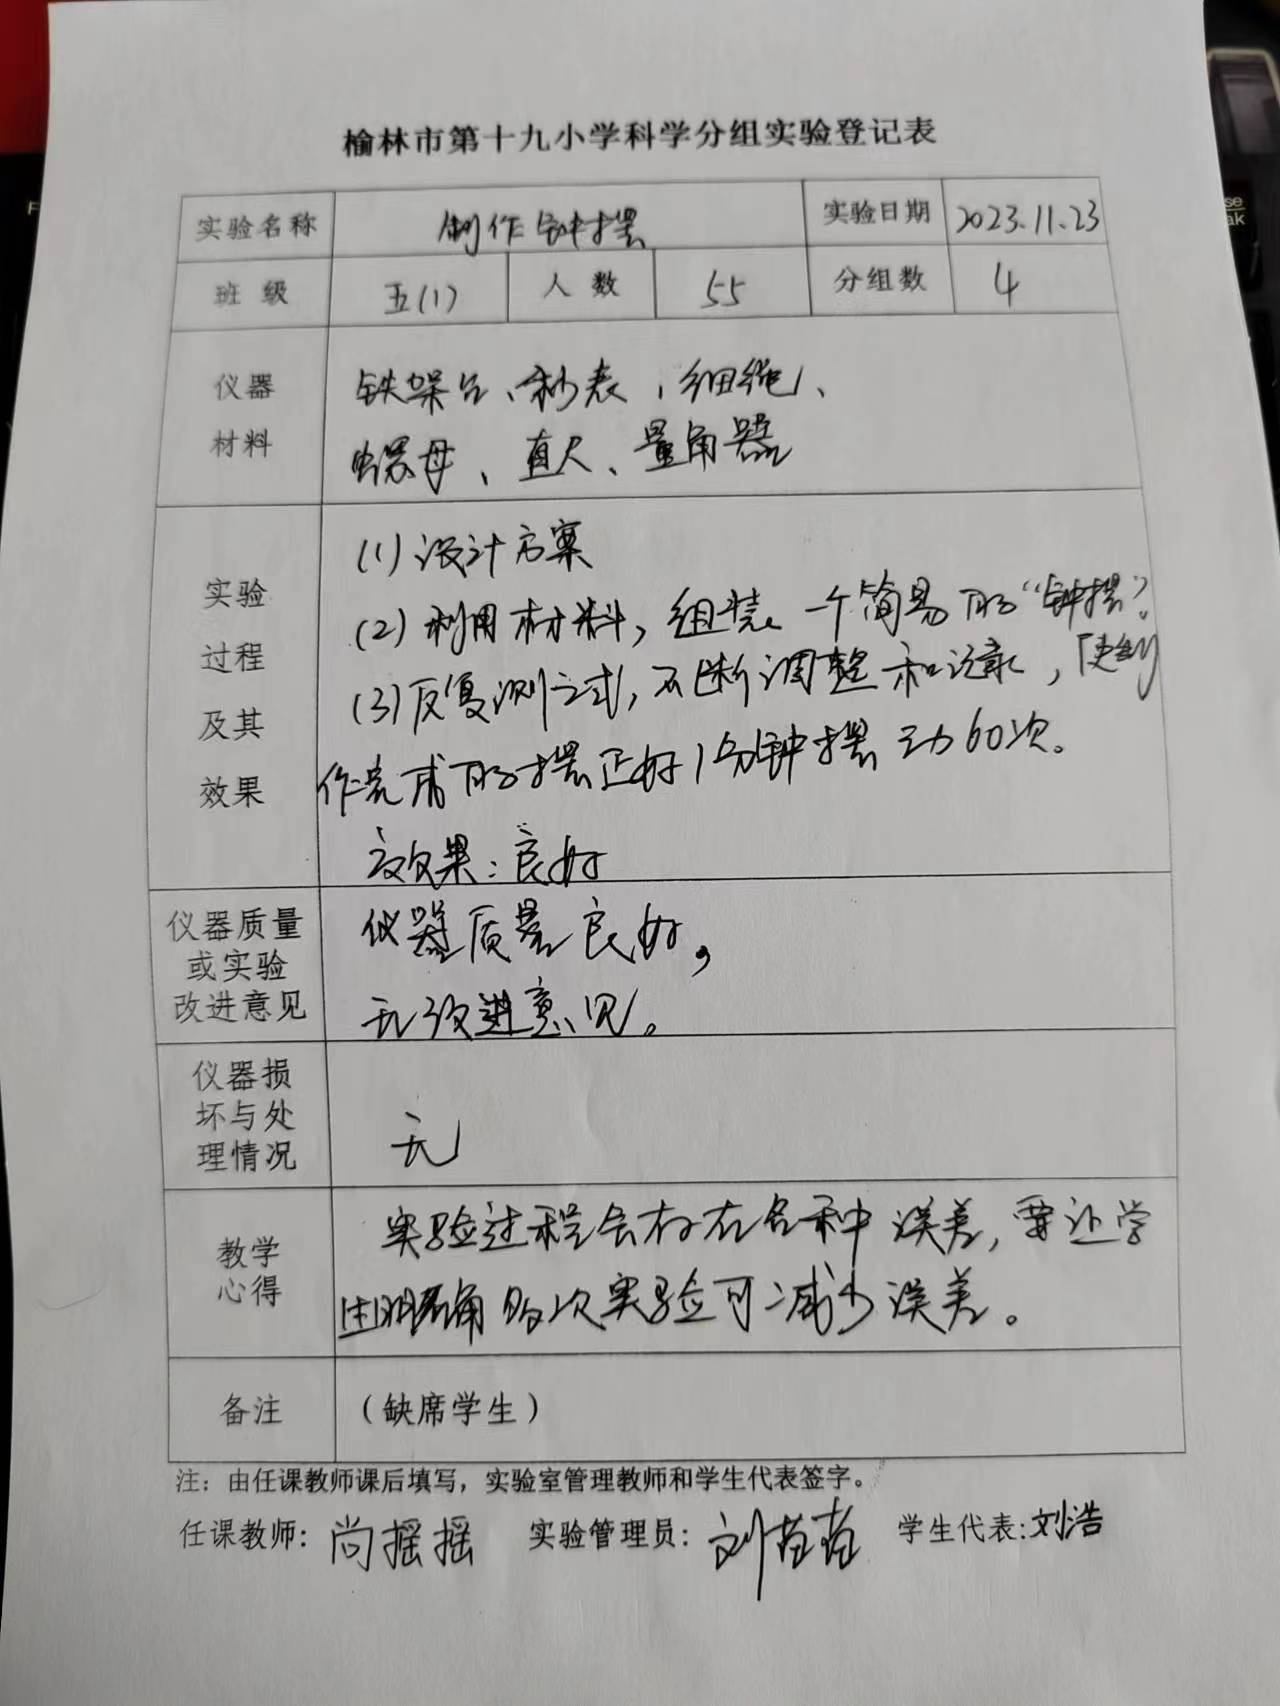 榆林市第十九小学科学分组实验登记表
实验名称 制作钟摆 实验日期 2023.11.23
班 级 五(1) 人 数 55 分组数 4
仪器
材料
铁架台、秒表、细绳、
螺母、直尺、量角器
实验
过程
及其
效果
(1)设计方案
(2)利用材料,组装一个简易的“钟摆”。
(3)反复测试,不断调整和记录,使制
作完成的摆正好1分钟摆动60次。
效果:良好
仪器质量
或实验
改进意见
仪器质量良好,
无改进意见。
仪器损
坏与处
理情况
无
教学
心得
实验过程会存在各种误差,要让学
生明确多次实验可减少误差。
备注 (缺席学生)
注：由任课教师课后填写，实验室管理教师和学生代表签字。
任课教师: 尚摇摇 实验管理员: 刘 学生代表:刘浩
se
ak